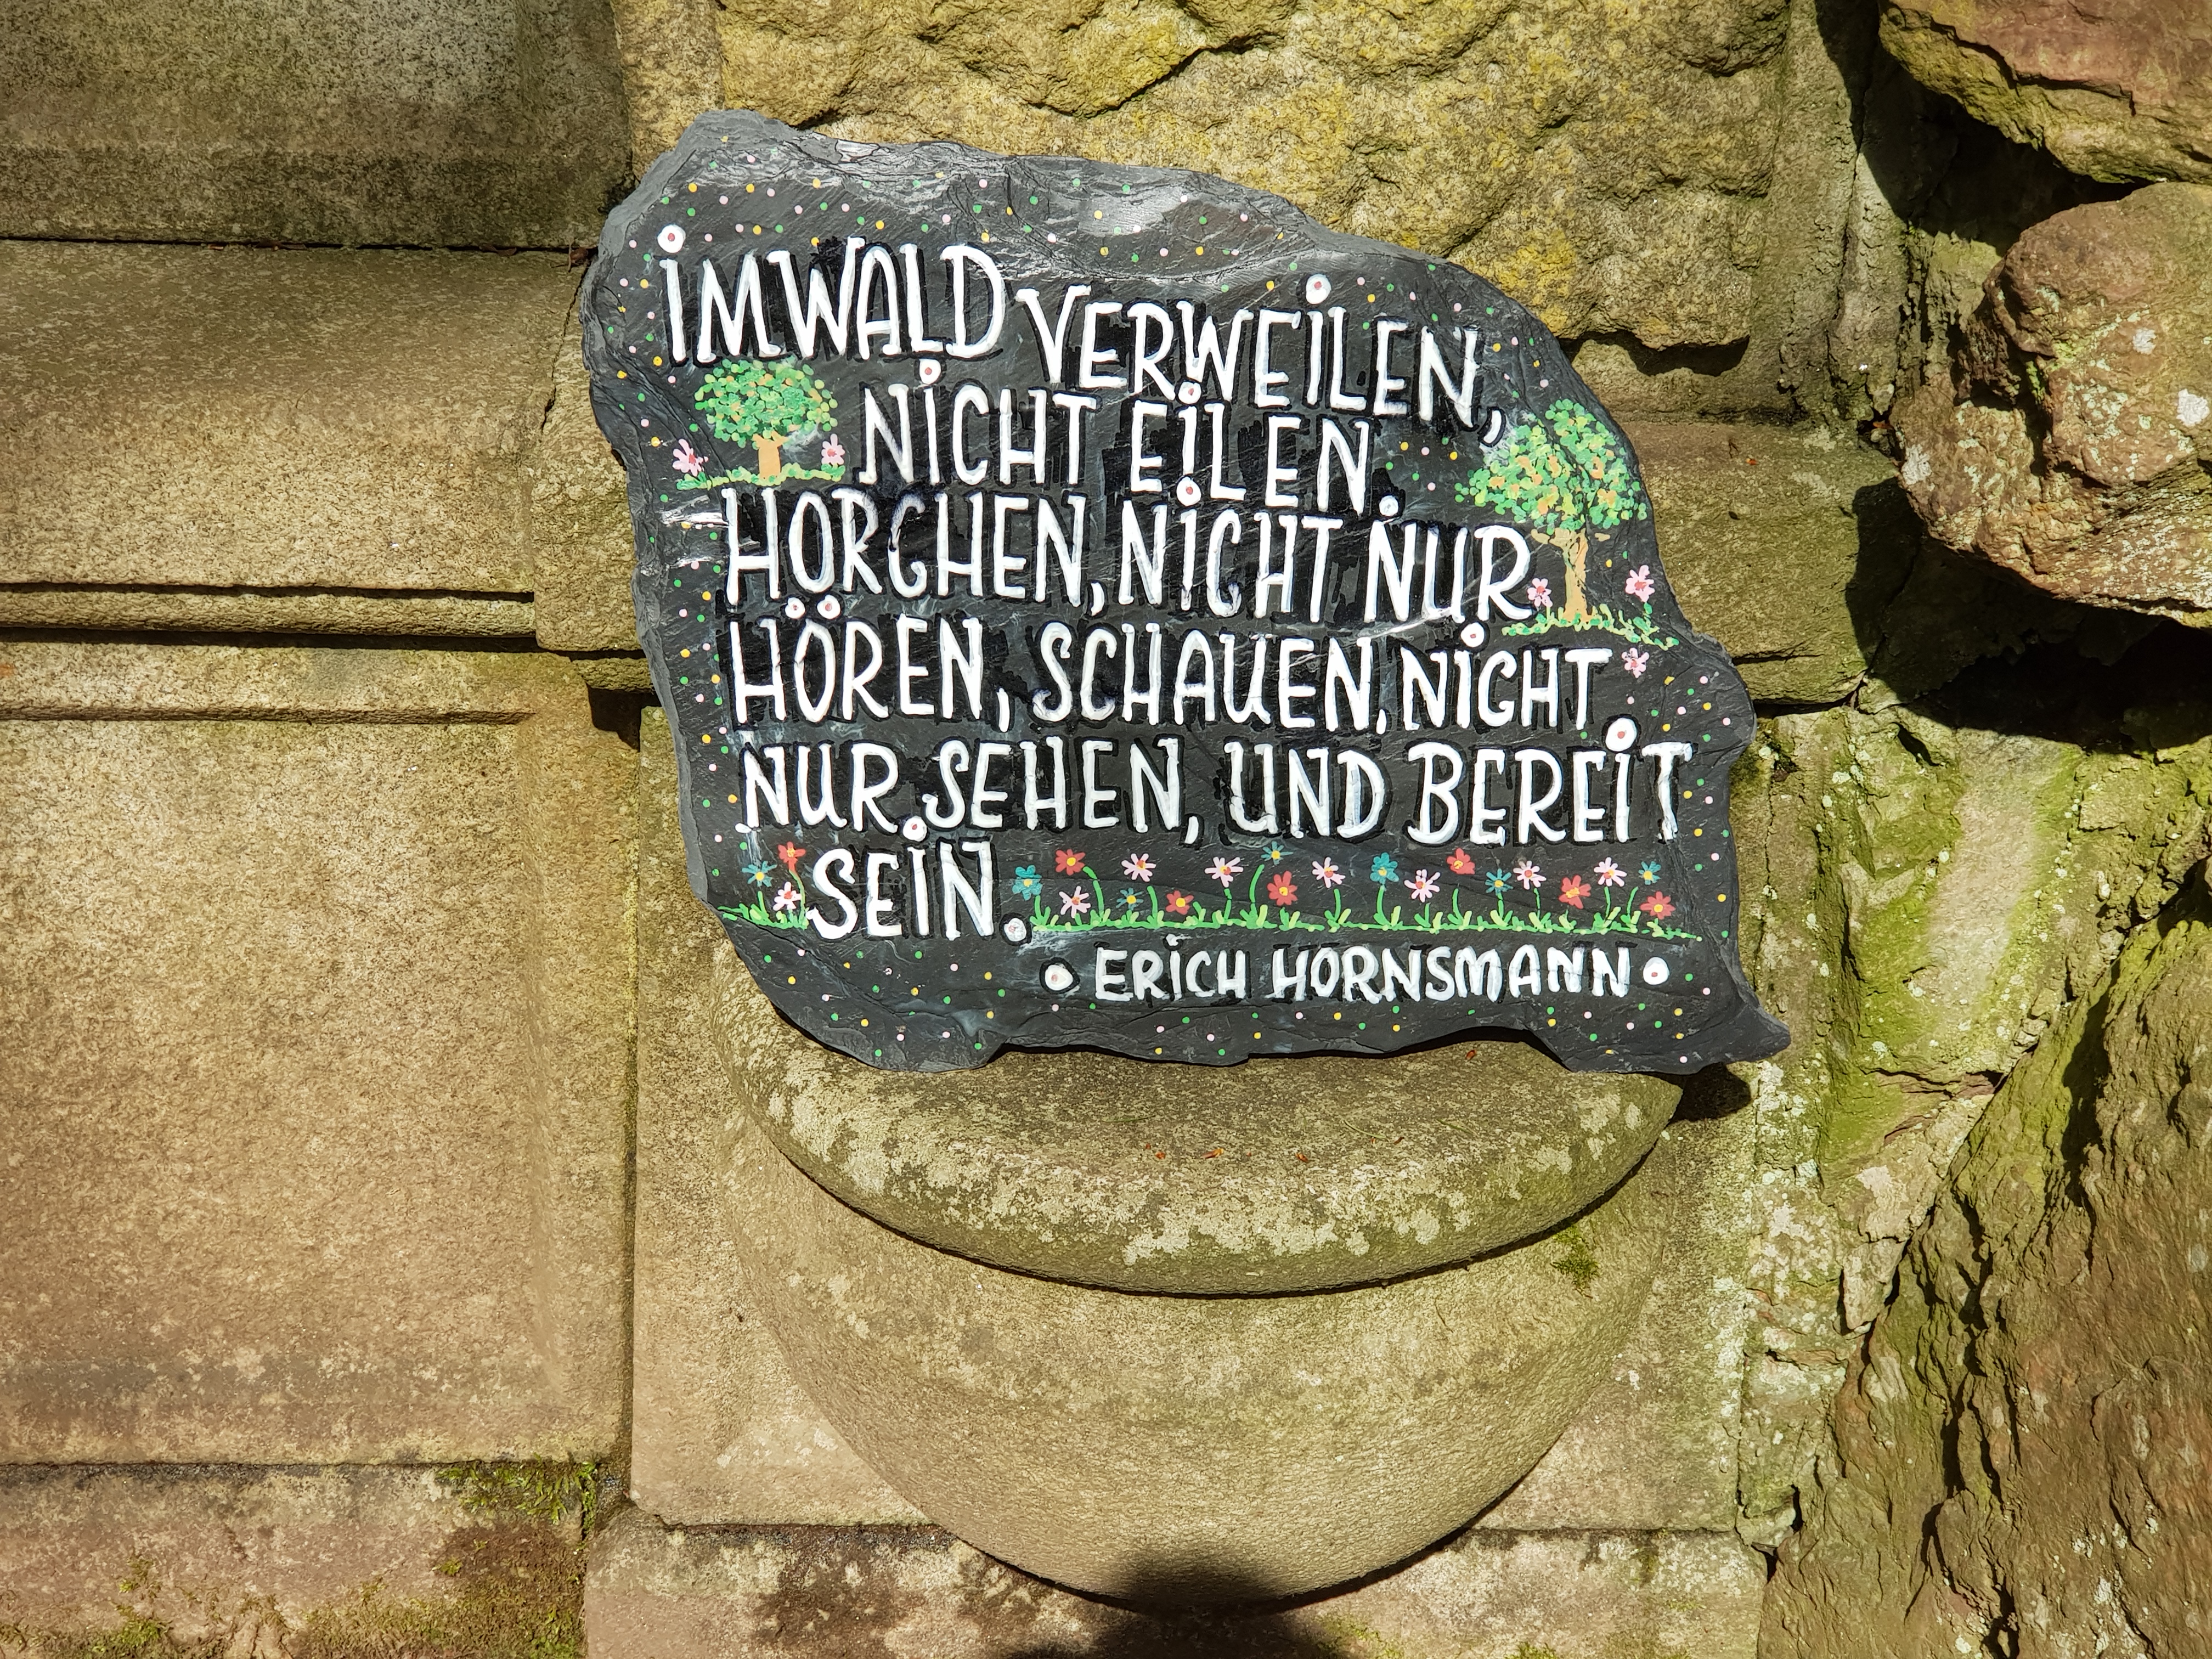 IMWALD VERWEILEN,
NICHT EILEN.
HORCHEN, NICHT NUR
HÖREN, SCHAUEN, NICHT
NUR SEHEN, UND BEREIT
SEIN.
• ERICH HORNSMANN •